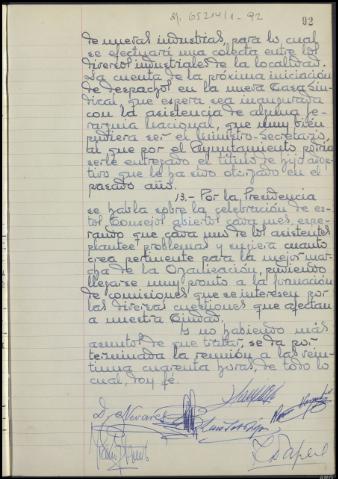 92
de nuevas industrias, para lo cual
se efectuará una colecta entre los
diversos industriales de la localidad.
Da cuenta de la próxima iniciación
de despachos en la nueva Casa Sin-
dical, que espera sea inaugurada
con la asistencia de alguna je-
rarquía nacional, que muy bien
pudiera ser el Ministro-Secretario,
al que por el Ayuntamiento podría
serle entregado el título de hijo adop-
tivo que le ha sido otorgado en el
pasado año.
13.- Por la Presidencia
se habla sobre la celebración de es-
tos Consejos abiertos cada mes, espe-
rando que cada uno de los asistentes
plantee problemas y sugiera cuanto
crea pertinente para la mejor mar-
cha de la Organización, pudiendo
llegarse muy pronto a la formación
de comisiones que se interesen por
las diversas cuestiones que afectan
a nuestra Ciudad.
Y no habiendo más
asuntos de que tratar, se da por
terminada la reunión a las vein-
tiuna cuarenta horas, de todo lo
cual, doy fé.